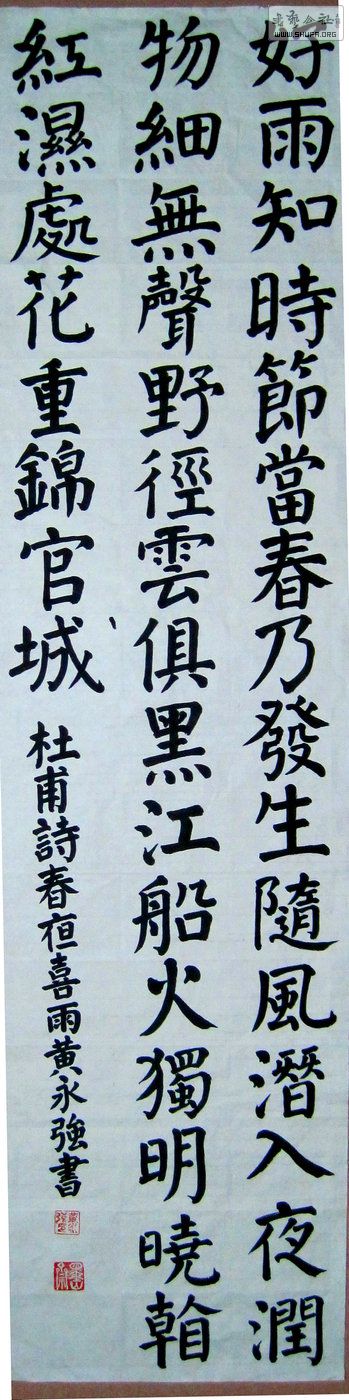 好雨知時節當春乃發生隨風潛入夜潤
物細無聲野徑雲俱黑江船火獨明曉看
紅濕處花重錦官城
杜甫詩春亱喜雨黃永強書
書藝公社
WWW.SHUFA.ORG